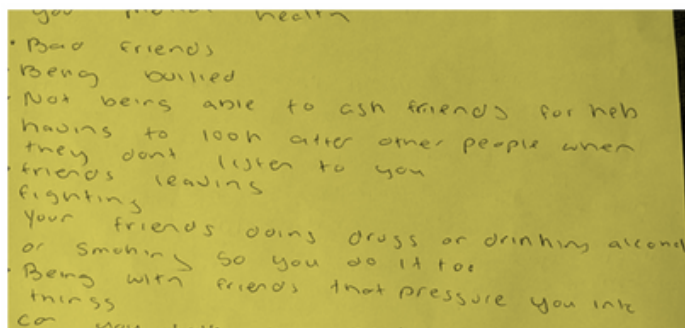 you mental health
· Bad friends
· Being bullied
· Not being able to ask friends for help
having to look after other people when
they dont listen to you
· friends leaving
fighting
Your friends doing drugs or drinking alcohol
or smoking so you do it too
· Being with friends that pressure you into
things